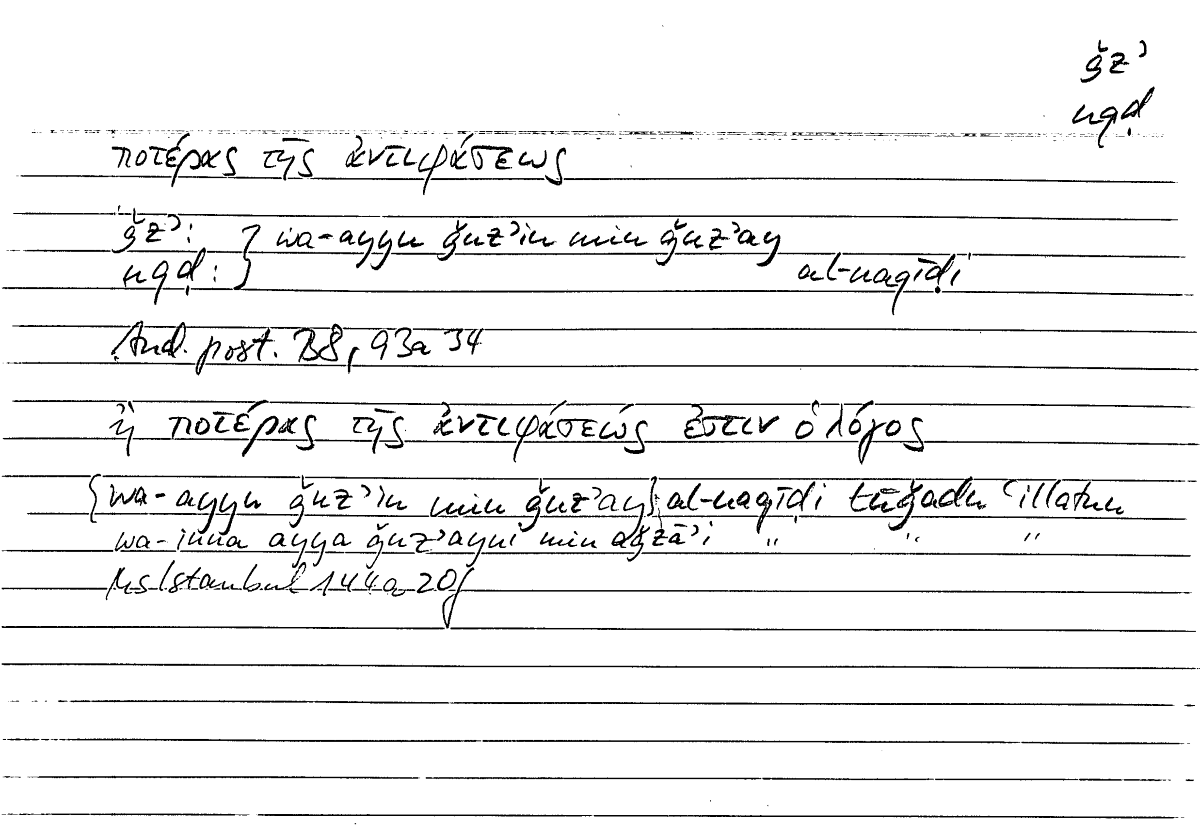 ǧzʾ
nqḍ
ποτέρας τῆς ἀντιφάσεως
ǧzʾ: } wa-ayyu ǧuzʾin min ǧuzʾay
nqḍ: } al-naqīḍi
And. post. B8, 93a 34
ἢ ποτέρας τῆς ἀντιφάσεώς ἐστιν ὁ λόγος
{wa-ayyu ǧuzʾin min ǧuzʾay} al-naqīḍi tūǧadu ʿillatun
wa-inna ayya ǧuzʾayni min aǧzāʾi " " "
Ms Istanbul 144a 20f